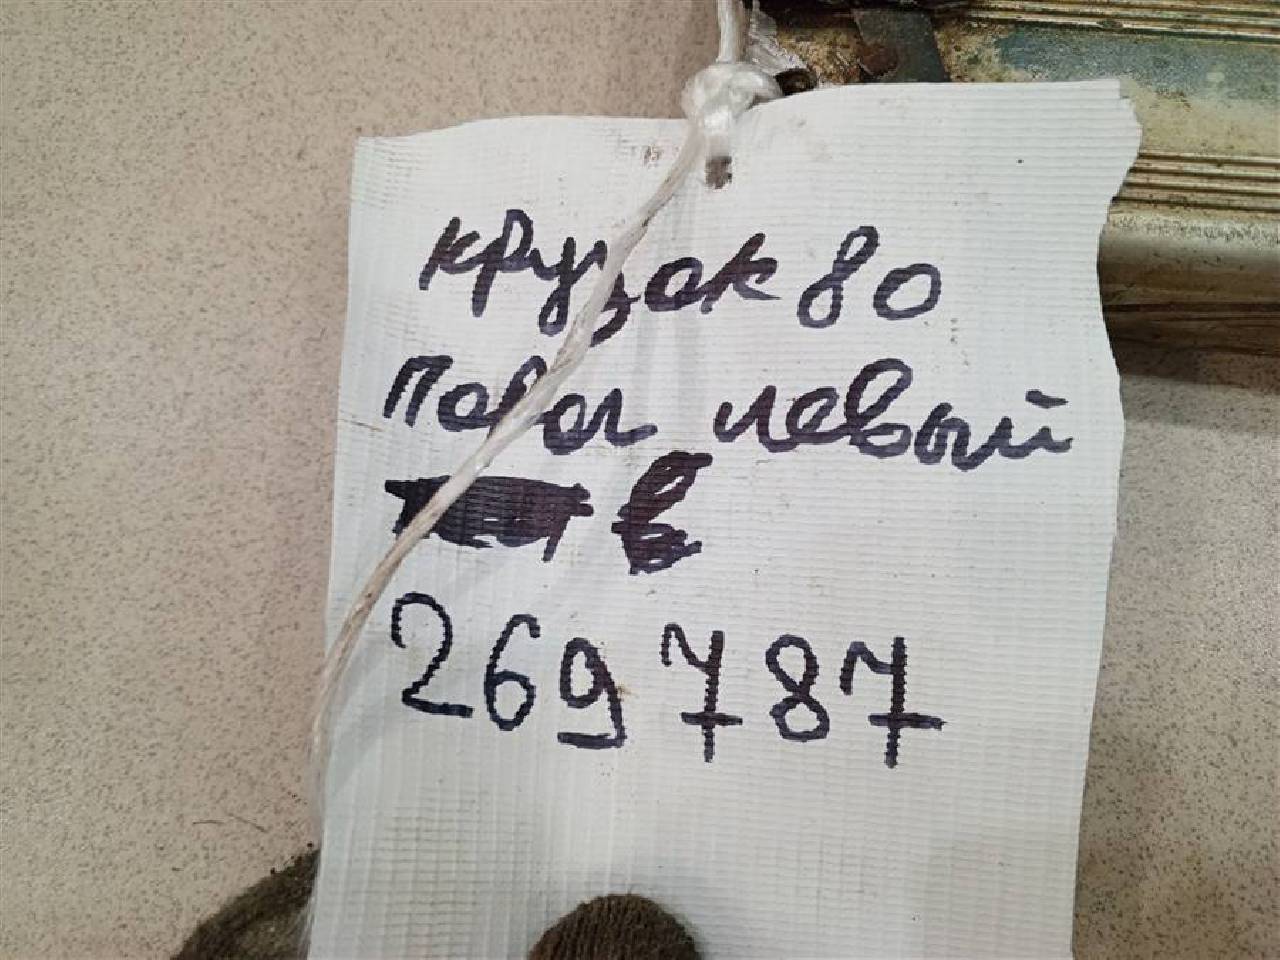 крузак 80
Порог левый
269787